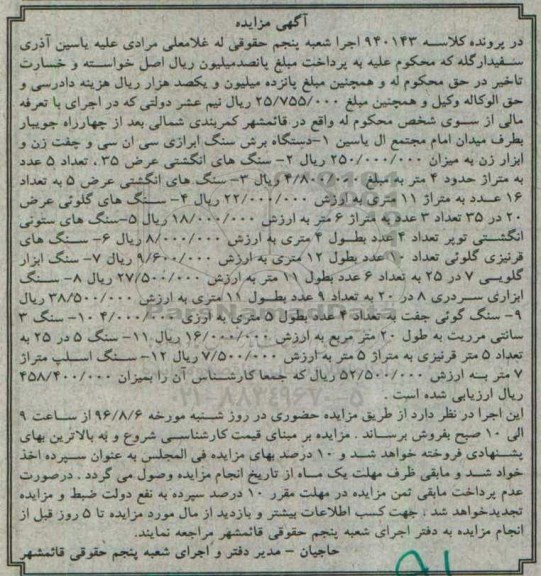 آگهی مزایده
در پرونده کلاسه ۹۴۰۱۴۳ اجرا شعبه پنجم حقوقی له غلامعلی مرادی علیه یاسین آذری
سفیدارگله که محکوم علیه به پرداخت مبلغ پانصدمیلیون ریال اصل خواسته و خسارت
تاخیر در حق محکوم له و همچنین مبلغ پانزده میلیون و یکصد هزار ریال هزینه دادرسی و
حق الوکاله وکیل و همچنین مبلغ ۲۵/۷۵۵/۰۰۰ ریال نیم عشر دولتی که در اجرای با تعرفه
مالی از سوی شخص محکوم له واقع در قائمشهر کمربندی شمالی بعد از چهارراه جویبار
بطرف میدان امام مجتمع ال یاسین ۱-دستگاه برش سنگ ابرازی سی ان سی و جفت زن و
ابزار زن به میزان ۲۵۰/۰۰۰/۰۰۰ ریال ۲- سنگ های انگشتی عرض ۳۵ ، تعداد ۵ عدد
به متراژ حدود ۴ متر به مبلغ ۴/۸۰۰/۰۰۰ ریال ۳- سنگ های انگشتی عرض ۵ به تعداد
۱۶ عدد به متراژ ۱۱ متری به ارزش ۲۲/۰۰۰/۰۰۰ ریال ۴- سنگ های گلوئی عرض
۲۰ در ۳۵ تعداد ۳ عدد به متراژ ۶ متر به ارزش ۱۸/۰۰۰/۰۰۰ ریال ۵-سنگ های ستونی
انگشتی توپر تعداد ۴ عدد بطول ۴ متری به ارزش ۸/۰۰۰/۰۰۰ ریال ۶- سنگ های
قرنیزی گلوئی تعداد ۱۰ عدد بطول ۱۲ متری به ارزش ۹/۶۰۰/۰۰۰ ریال ۷- سنگ ابزار
گلویی ۷ در ۲۵ به تعداد ۶ عدد بطول ۱۱ متر به ارزش ۲۷/۵۰۰/۰۰۰ ریال ۸- سنگ
ابزاری سردری ۸ در ۲۰ به تعداد ۹ عدد بطول ۱۱ متری به ارزش ۳۸/۵۰۰/۰۰۰ ریال
۹- سنگ گوئی جفت به تعداد ۴ عدد بطول ۵ متری به ارزی ۴/۰۰۰/۰۰۰ ۱۰- سنگ ۳
سانتی مرریت به طول ۲۰ متر مربع به ارزش ۱۶/۰۰۰/۰۰۰ ریال ۱۱- سنگ ۵ در ۲۵ به
تعداد ۵ متر قرنیزی به متراژ ۵ متر به ارزش ۷/۵۰۰/۰۰۰ ریال ۱۲- سنگ اسلب متراژ
۷ متر به ارزش ۵۲/۵۰۰/۰۰۰ ریال که جمعا کارشناس آن را بمیزان ۴۵۸/۴۰۰/۰۰۰
ریال ارزیابی شده است .
این اجرا در نظر دارد از طریق مزایده حضوری در روز شنبه مورخه ۹۶/۸/۶ از ساعت ۹
الی ۱۰ صبح بفروش برساند . مزایده بر مبنای قیمت کارشناسی شروع و به بالاترین بهای
پشنهادی فروخته خواهد شد و ۱۰ درصد بهای مزایده فی المجلس به عنوان سپرده اخذ
خواد شد و مابقی ظرف مهلت یک ماه از تاریخ انجام مزایده وصول می گردد . درصورت
عدم پرداخت مابقی ثمن مزایده در مهلت مقرر ۱۰ درصد سپرده به نفع دولت ضبط و مزایده
تجدیدخواهد شد . جهت کسب اطلاعات بیشتر و بازدید از مال مورد مزایده تا ۵ روز قبل از
انجام مزایده به دفتر اجرای شعبه پنجم حقوقی قائمشهر مراجعه نمایند.
حاجیان - مدیر دفتر و اجرای شعبه پنجم حقوقی قائمشهر